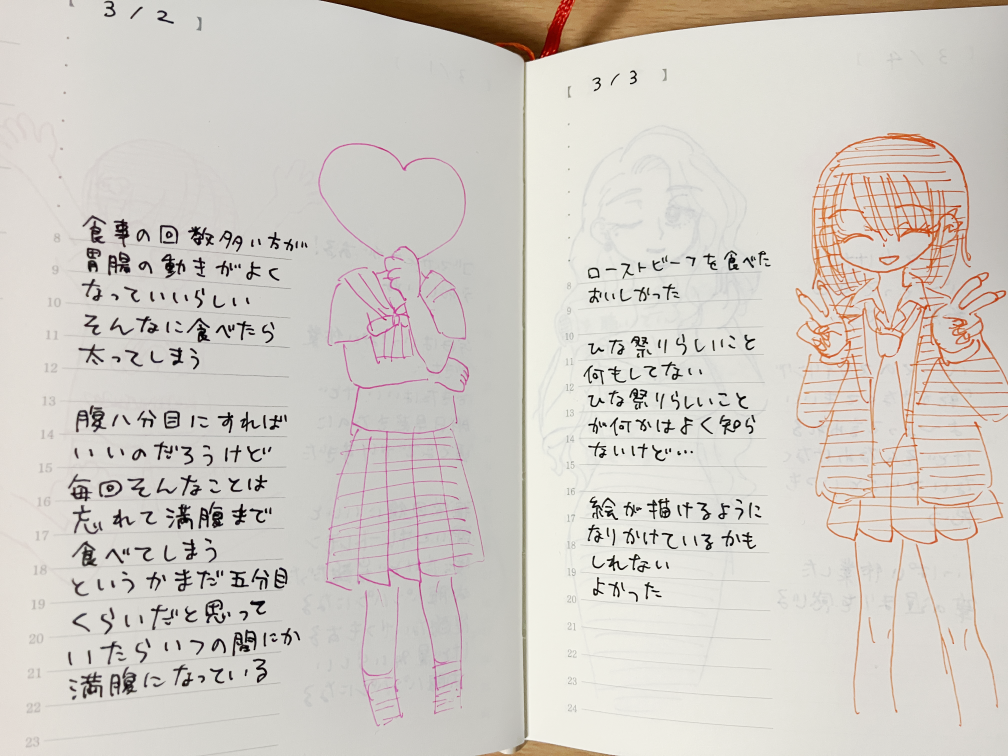 【 3/2 】
食事の回数多い方が
胃腸の動きがよく
なっていいらしい
そんなに食べたら
太ってしまう
腹八分目にすれば
いいのだろうけど
毎回そんなことは
忘れて満腹まで
食べてしまう
というかまだ五分目
くらいだと思って
いたらいつの間にか
満腹になっている
8
9
10
11
12
13
14
15
16
17
18
19
20
21
22
23
【 3/3 】
ローストビーフを食べた
おいしかった
ひな祭りらしいこと
何もしてない
ひな祭りらしいこと
が何かはよく知ら
ないけど…
絵が描けるように
なりかけているかも
しれない
よかった
8
9
10
11
12
13
14
15
16
17
18
19
20
21
22
23
24